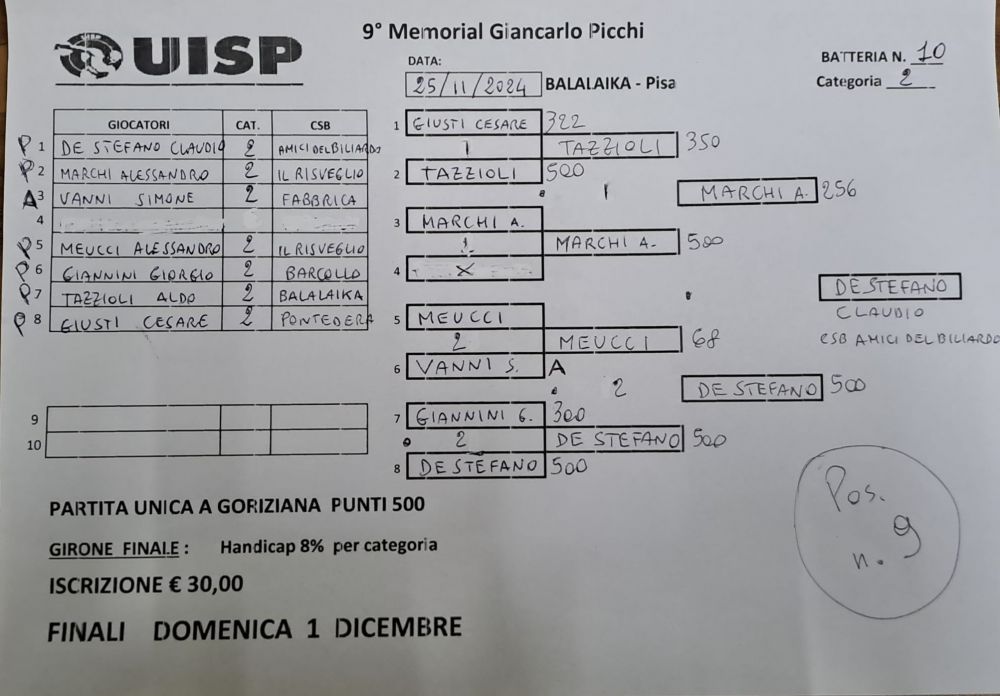 9° Memorial Giancarlo Picchi
UISP
DATA:
25/11/2024 BALALAIKA - Pisa
BATTERIA N. 10
Categoria 2
GIOCATORI CAT. CSB
P 1 DE STEFANO CLAUDIO 2 AMICI DEL BILIARDO
P 2 MARCHI ALESSANDRO 2 IL RISVEGLIO
A 3 VANNI SIMONE 2 FABBRICA
4
P 5 MEUCCI ALESSANDRO 2 IL RISVEGLIO
P 6 GIANNINI GIORGIO 2 BARCOLLO
P 7 TAZZIOLI ALDO 2 BALALAIKA
P 8 GIUSTI CESARE 2 PONTEDERA
9
10
1 GIUSTI CESARE 322
1 TAZZIOLI 350
2 TAZZIOLI 500
1 MARCHI A. 256
3 MARCHI A.
1 MARCHI A. 500
4 X
DE STEFANO
CLAUDIO
CSB AMICI DEL BILIARDO
5 MEUCCI
2 MEUCCI 68
6 VANNI S. A
2 DE STEFANO 500
7 GIANNINI G. 300
2 DE STEFANO 500
8 DE STEFANO 500
PARTITA UNICA A GORIZIANA PUNTI 500
GIRONE FINALE : Handicap 8% per categoria
ISCRIZIONE € 30,00
FINALI DOMENICA 1 DICEMBRE
Pos.
n. 9